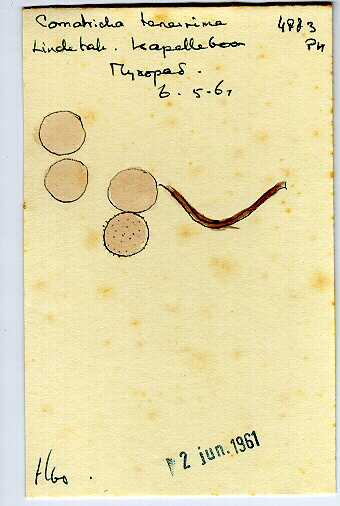 Comatricha tenerrima 4883
Lindetak. Kapelleboom PH
Myxopad.
6. 5. 61
2 jun. 1961